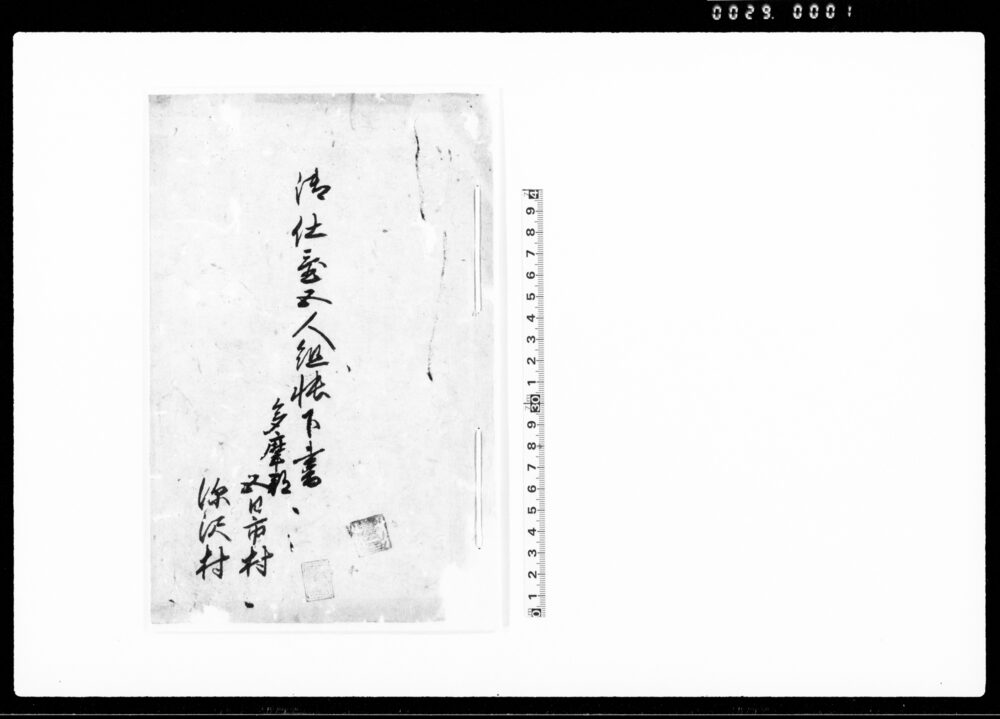 0029. 0001
御仕置五人組帳下書
多摩郡
五日市村
深沢村
0 1 2 3 4 5 6 7 8 9 30 1 2 3 4 5 6 7 8 9 4